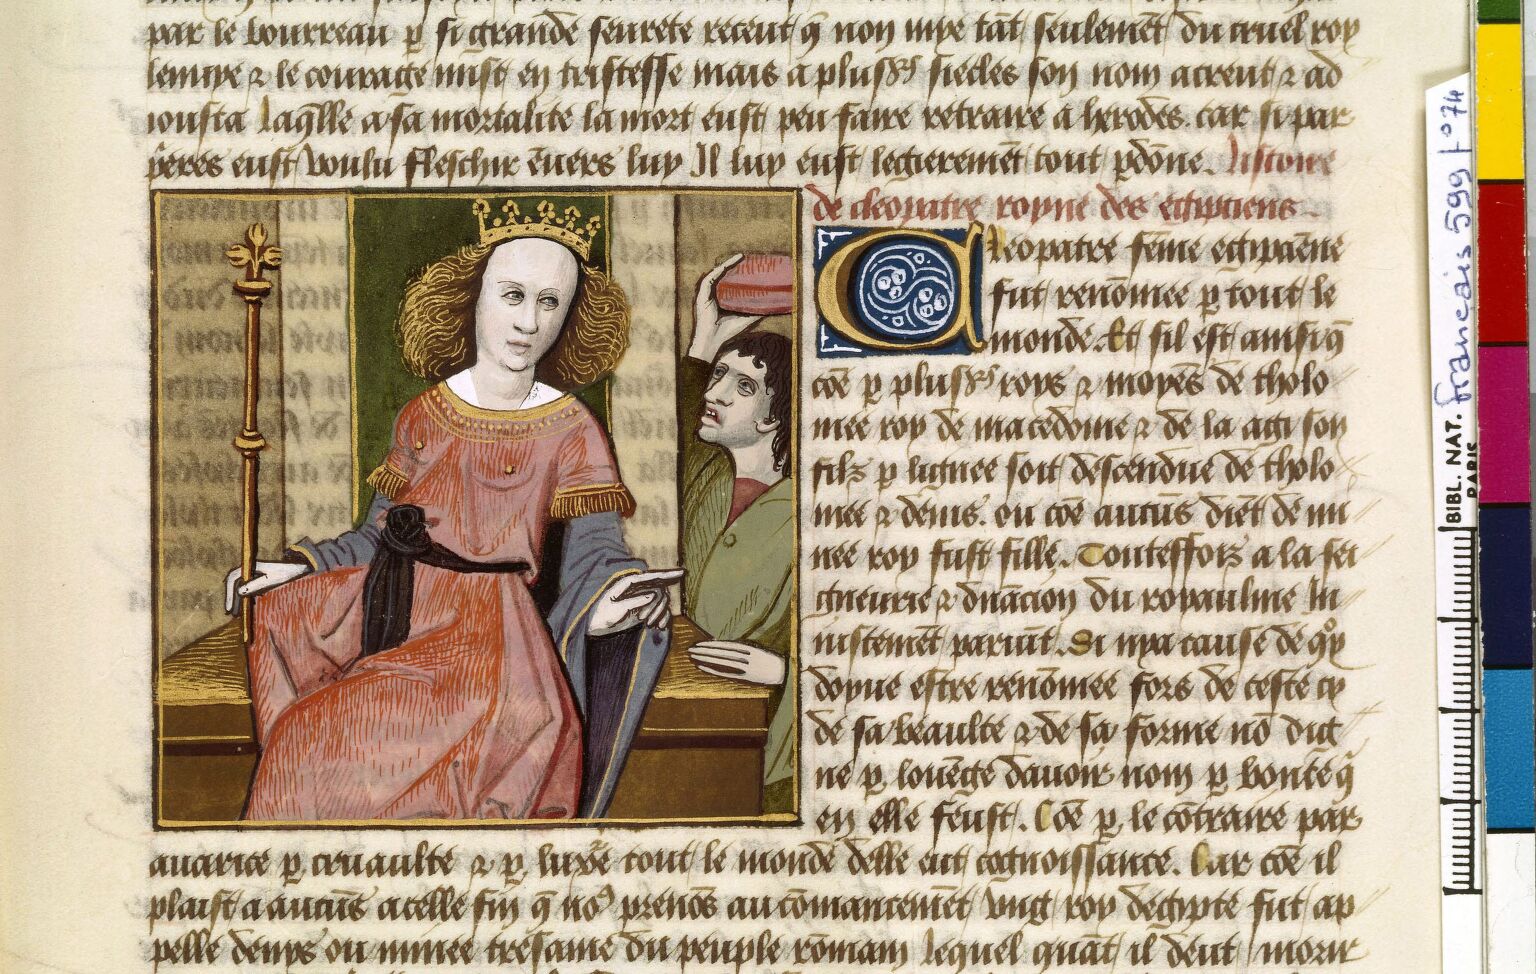 par le bourreau p̱ si grande seurete receut q̄ non mye tāt seulemēt du cruel roy
lemye ⁊ le courage mist en tristesse mais a plusrs siecles son nom acreut ⁊ ad
iousta laq̄lle a sa mortalite la mort eust peu faire retraire a herodes. car si par
p̄eres eust voulu fleschir ēuers luy Il luy eust legierement tout p̱dōne. listoire
de cleopatre royne des egipciens
Cleopatre fēme egipciēne
fut renōmee p̱ tout le
monde. Et sil est ainsi q̄
cōe p̱ plusrs roys ⁊ moyēs de tholo
mee roy de macedoine ⁊ de la son
filz p̱ lignee soit descendue de tholo
mee ⁊ denis. ou cōe aucūs diēt de mi
nee roy fust fille. Toutesfois a la sei
gneurie ⁊ dn̄acion du royaulme In
iustemēt paruīt. Si nya cause de quoy
doyue estre renōmee fors de ceste cy
de sa beaulte ⁊ de sa forme nō dict
ne p̱ louēge dauoir nom p̱ bonte q̄
en elle feust. Cōe p̱ le cōtraire par
auarice p̱ cruaulte ⁊ p̱ luxē tout le monde delle eut cognoissance. Car cōe il
plaist a aucūs a celle fin q̄ nos prenōs au cōmancemēt vng roy degipte fut ap
pelle denys ou minee tresame du peuple rōmain lequel quāt il deut mourir
Français 599 f° 74
BIBL. NAT.
PARIS